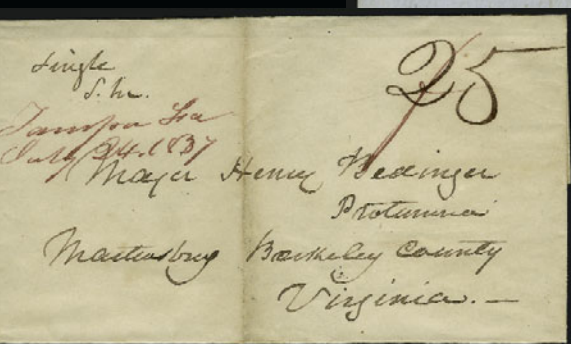 Single
Sh.
25
Tampa Fa
July 24. 1837
Major Henry Bedinger
Protumna
Martinsburg Berkeley County
Virginia. —